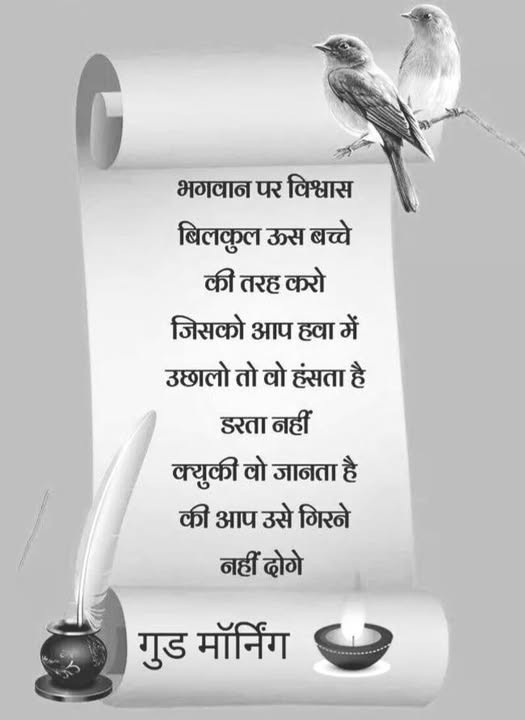 भगवान पर विश्वास
बिलकुल ऊस बच्चे
की तरह करो
जिसको आप हवा में
उछालो तो वो हंसता है
डरता नहीं
क्युकी वो जानता है
की आप उसे गिरने
नहीं दोगे
गुड मॉर्निंग